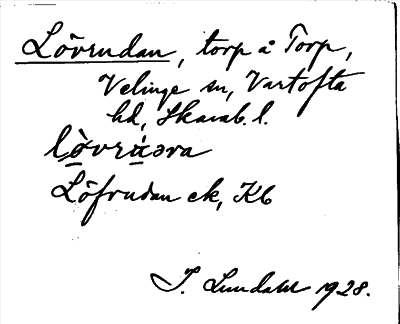 Lövrudan, torp å Torp,
Velinge sn, Vartofta
hd, Skarab. l.
lòvrúəra
Löfrudan ek, Kb
I. Lundahl 1928.